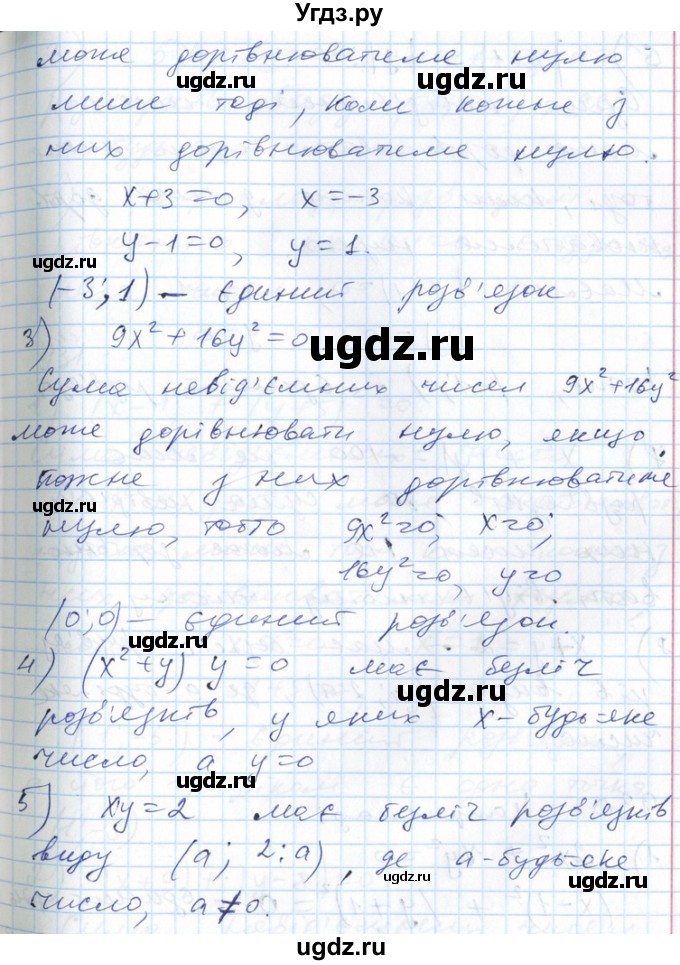 Угдз.ру
може дорівнюватиме нулю
ugdz.ru
ugdz.ru
лише тоді, коли кожне з
них дорівнюватиме нулю.
ugdz.ru
x+3=0, x=-3
y-1=0, y=1.
ugdz.ru
(-3;1) - єдиний розв'язок
3) 9x²+16y²=0
ugdz.ru
Сума невід'ємних чисел 9x²+16y²
може дорівнювати нулю, якщо
кожне з них дорівнюватиме
ugdz.ru
нулю, тобто 9x²=0, x=0;
16y²=0, y=0
(0;0) - єдиний розв'язок.
ugdz.ru
4) (x²+y) y=0 має безліч
ugdz.ru
розв'язків, у яких x-будь-яке
число, а y=0
ugdz.ru
5) xy=2 має безліч розв'язків
виду (a; 2:a), де a-будь-яке
ugdz.ru
число, a≠0.
ugdz.ru
ugdz.ru